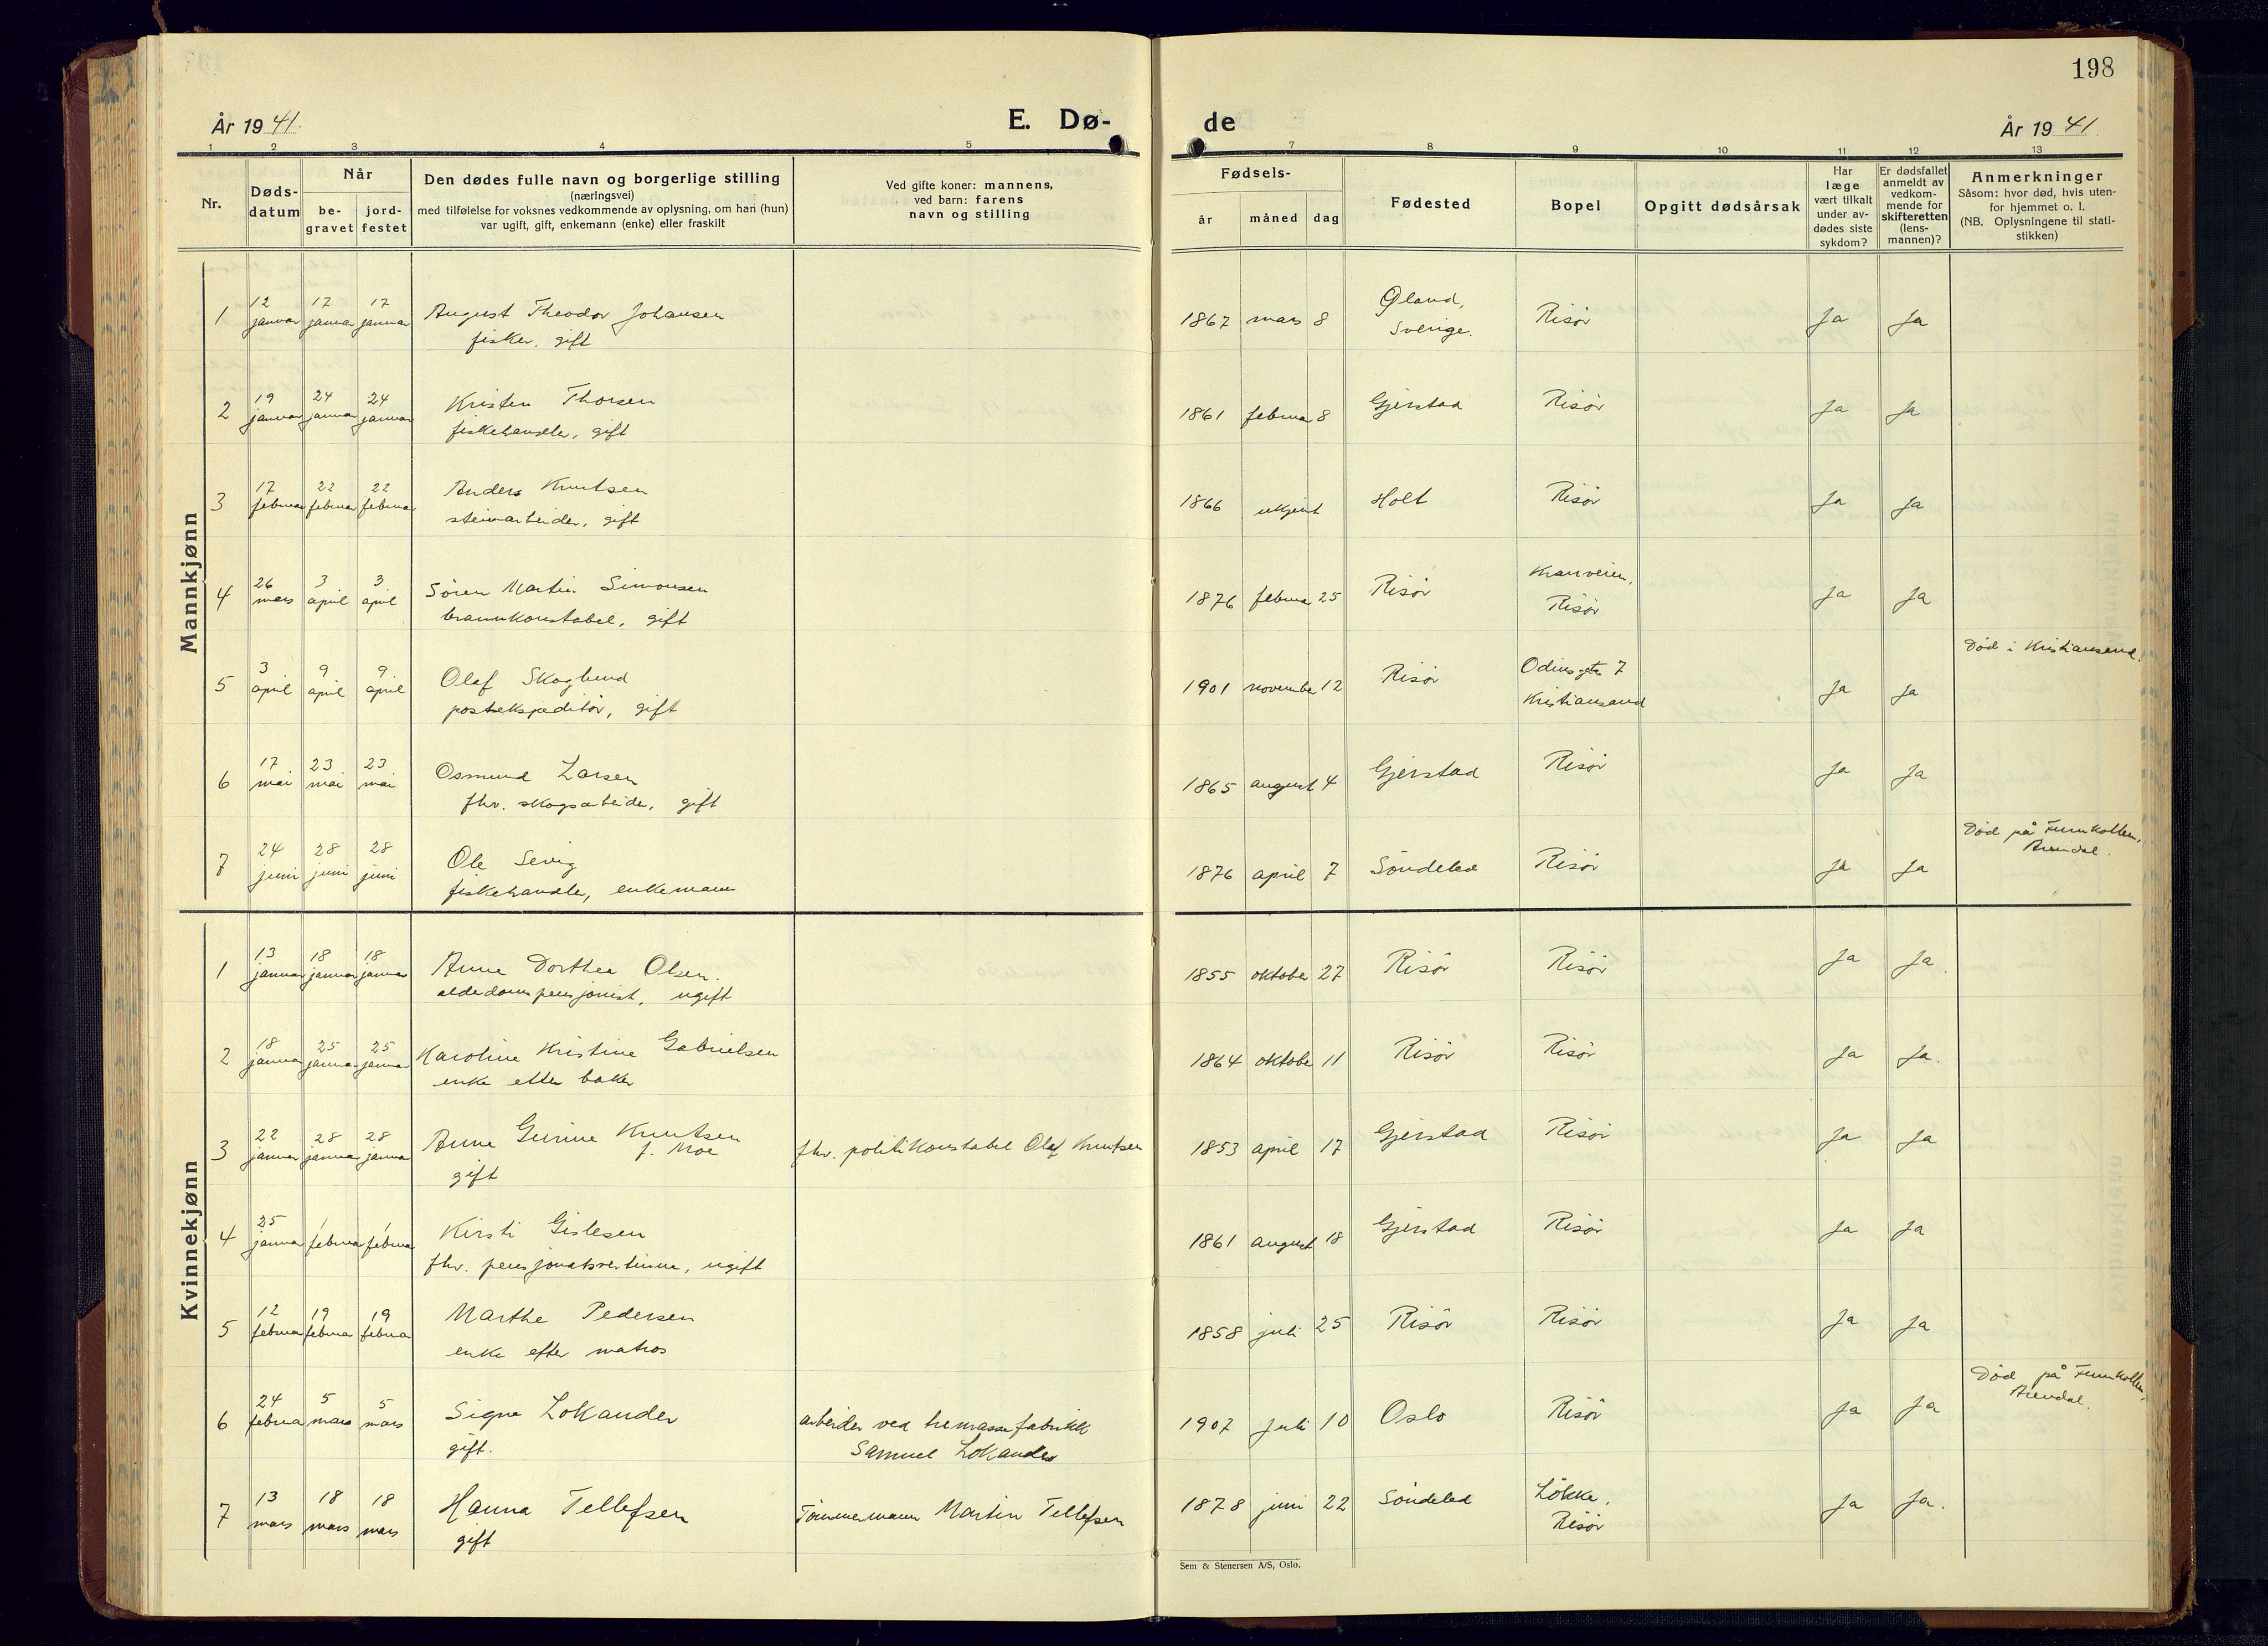 198
År 1941.
E. Dø-
de
År 1941.
1 2 3 4 5 7 8 9 10 11 12 13
Nr.
Døds-
datum
Når
be-
gravet
jord-
festet
Den dødes fulle navn og borgerlige stilling
(næringsvei)
med tilføielse for voksnes vedkommende av oplysning, om han (hun)
var ugift, gift, enkemann (enke) eller fraskilt
Ved gifte koner: mannens,
ved barn: farens
navn og stilling
Fødsels-
år måned dag
Fødested
Bopel
Opgitt dødsårsak
Har
læge
vært tilkalt
under av-
dødes siste
sykdom?
Er dødsfallet
anmeldt av
vedkom-
mende for
skifteretten
(lens-
mannen)?
Anmerkninger
Såsom: hvor død, hvis uten-
for hjemmet o. l.
(NB. Oplysningene til stati-
stikken)
Mannkjønn
12 17 17
1 januar januar januar August Theodor Johansen 1867 mars 8 Øland, Risør Ja Ja
fisker, gift Sverige.
19 24 24
2 januar januar januar Kristen Thorsen 1861 februar 8 Gjerstad Risør Ja Ja
fiskehandler, gift
17 22 22
3 februar februar februar Anders Knutsen 1866 ukjent Holt Risør Ja Ja
steinarbeider, gift
26 3 3
4 mars april april Søren Martin Simonsen 1876 februar 25 Risør Kranveien, Ja Ja
brannkonstabel, gift Risør
3 9 9
5 april april april Olaf Skoglund 1901 november 12 Risør Odinsgate 7 Ja Ja Død i Kristiansand.
postekspeditør, gift Kristiansand
17 23 23
6 mai mai mai Osmund Larsen 1865 august 4 Gjerstad Risør Ja Ja
fhv. skogsarbeider, gift
24 28 28
7 juni juni juni Ole Sevig 1876 april 7 Søndeled Risør Ja Ja Død på Furukollen,
Arendal.
fiskehandler, enkemann
Kvinnekjønn
13 18 18
1 januar januar januar Anne Dorthea Olsen. 1855 oktober 27 Risør Risør Ja Ja.
alderdomspensjonist, ugift
18 25 25
2 januar januar januar Karoline Kristine Gabrielsen 1864 oktober 11 Risør Risør Ja Ja.
enke etter baker
22 28 28
3 januar januar januar Anne Gurine Knutsen fhv. politikonstabel Olaf Knutsen 1853 april 17 Gjerstad Risør Ja Ja
f. Moe
gift
25 1 1
4 januar februar februar Kirsti Gislesen 1861 august 18 Gjerstad Risør Ja Ja
fhv. pensjonatsvertinne, ugift
12 19 19
5 februar februar februar Marthe Pedersen 1858 juli 25 Risør Risør Ja Ja
enke efter matros
24 5 5
6 februar mars mars Signe Lokander arbeider ved tremassefabrikk 1907 juli 10 Oslo Risør Ja Ja Død på Furukollen,
Arendal.
gift. Samuel Lokander
13 18 18
7 mars mars mars Hanna Tellefsen Tömmermann Martin Tellefsen 1878 juni 22 Søndeled Løkke, Ja Ja.
gift Risør
Sem & Stenersen A/S, Oslo.